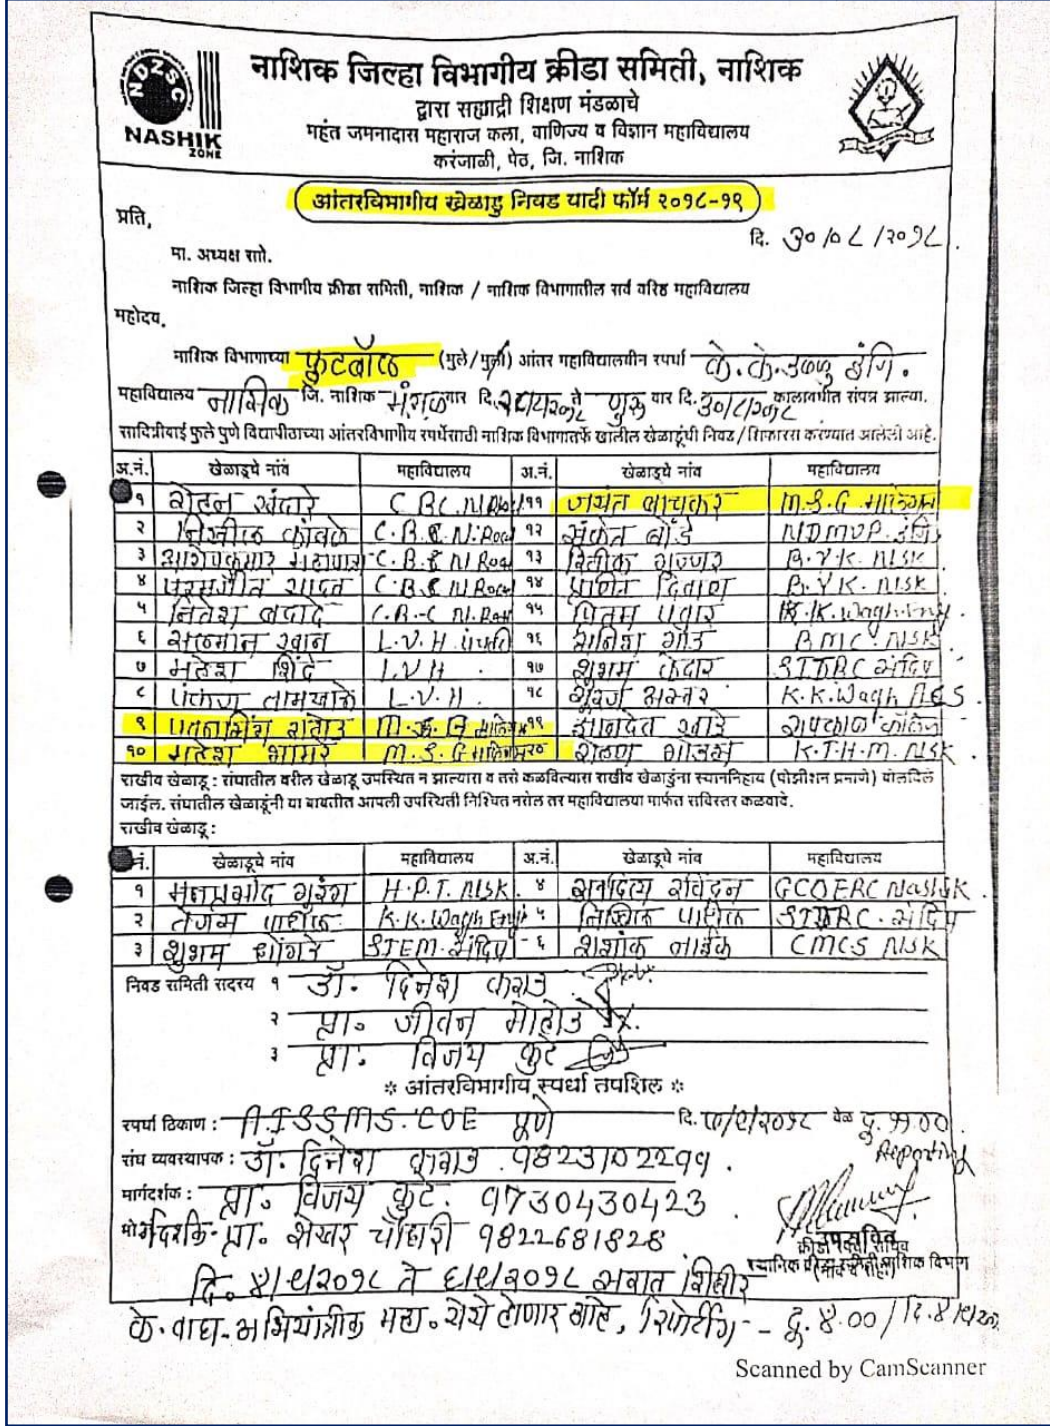 NDZSC
NASHIK
ZONE
नाशिक जिल्हा विभागीय क्रीडा समिती, नाशिक
द्वारा सह्याद्री शिक्षण मंडळाचे
महंत जमनादास महाराज कला, वाणिज्य व विज्ञान महाविद्यालय
करंजाळी, पेठ, जि. नाशिक
आंतरविभागीय खेळाडु निवड यादी फॉर्म २०१८-१९
प्रति,
दि. ३०/०८/२०१८.
मा. अध्यक्ष सो.
नाशिक जिल्हा विभागीय क्रीडा समिती, नाशिक / नाशिक विभागातील सर्व वरिष्ठ महाविद्यालय
महोदय,
नाशिक विभागाच्या फुटबॉल (मुले/मुली) आंतर महाविद्यालयीन स्पर्धा के. के. वाघ इंजि.
महाविद्यालय नाशिक जि. नाशिक मंगळवार दि. २८/८/२०१८ ते गुरूवार दि. ३०/८/२०१८ कालावधीत संपन्न झाल्या.
सावित्रीबाई फुले पुणे विद्यापीठाच्या आंतरविभागीय स्पर्धेसाठी नाशिक विभागातर्फे खालील खेळाडूंची निवड/शिफारस करण्यात आलेली आहे.
अ.नं. खेळाडूचे नांव महाविद्यालय अ.नं. खेळाडूचे नांव महाविद्यालय
१ रोहन खंदारे C.B.C. N.Road ११ जयंत वाघकर M.S.G. मालेगाव
२ निखील कांबळे C.B.C N.Road १२ संकेत बोर्डे NDMVP. इंजि
३ आशिषकुमार महापात्रा C.B.C N.Road १३ रितीक गुज्जर B.Y.K. NSK
४ परमजीत यादव C.B.C N.Road १४ B.Y.K. NSK
५ नितेश बदादे C.B.C N.Road १५ प्रितम पवार K.K.Wagh Eng
६ सलमान खान L.V.H. पंचवटी १६ मनिश गौड BMC. NSK
७ महेश शिंदे L.V.H १७ शुभम केदार SITRC संदिप
८ पंकज तामखाने L.V.H. १८ K.K.Wagh ACS
९ पवनसिंग राठोड M.S.G मालेगाव १९ ज्ञानदेव खाडे सपकाळ कॉलेज
१० महेश भामरे M.S.G मालेगाव २० K.T.H.M. NSK
राखीव खेळाडू : संघातील वरील खेळाडू उपस्थित न झाल्यास व तसे कळविल्यास राखीव खेळाडुंना स्थाननिहाय (पोझीशन प्रमाणे) बोलविले
जाईल. संघातील खेळाडूंनी या बाबतीत आपली उपस्थिती निश्चित नसेल तर महाविद्यालया मार्फत सविस्तर कळवावे.
राखीव खेळाडू :
नं. खेळाडूचे नांव महाविद्यालय अ.नं. खेळाडूचे नांव महाविद्यालय
१ मनप्रमोद गुरंग H.P.T. NSK. ४ आदित्य रविंद्रन GCOERC Nashik
२ तेजस पाटील K.K.Wagh Engi ५ निखिल पाटील SITRC. संदिप
३ शुभम घोंगते STEM. संदिप ६ शशांक नाईक CMCS NSK
निवड समिती सदस्य १ डॉ. दिनेश कराड
२ प्रा. जीवन मोहोड
३ प्रा. विजय कुटे
* आंतरविभागीय स्पर्धा तपशिल *
स्पर्धा ठिकाण : A.I.S.S.M.S. COE पुणे दि. १०/९/२०१८ वेळ दु. ११.००
Reporting
संघ व्यवस्थापक : डॉ. दिनेश कराड 9823102299.
मार्गदर्शक : प्रा. विजय कुटे. 9730430423
मार्गदर्शक - प्रा. शेखर चौधरी 9822681828
उपसचिव
दि. ४/९/२०१८ ते ६/९/२०१८ सराव शिबीर
के. वाघ. अभियांत्रिक महा. येथे होणार आहे, रिपोर्टींग - दु. ४.०० / दि. ४/९/२०१
Scanned by CamScanner